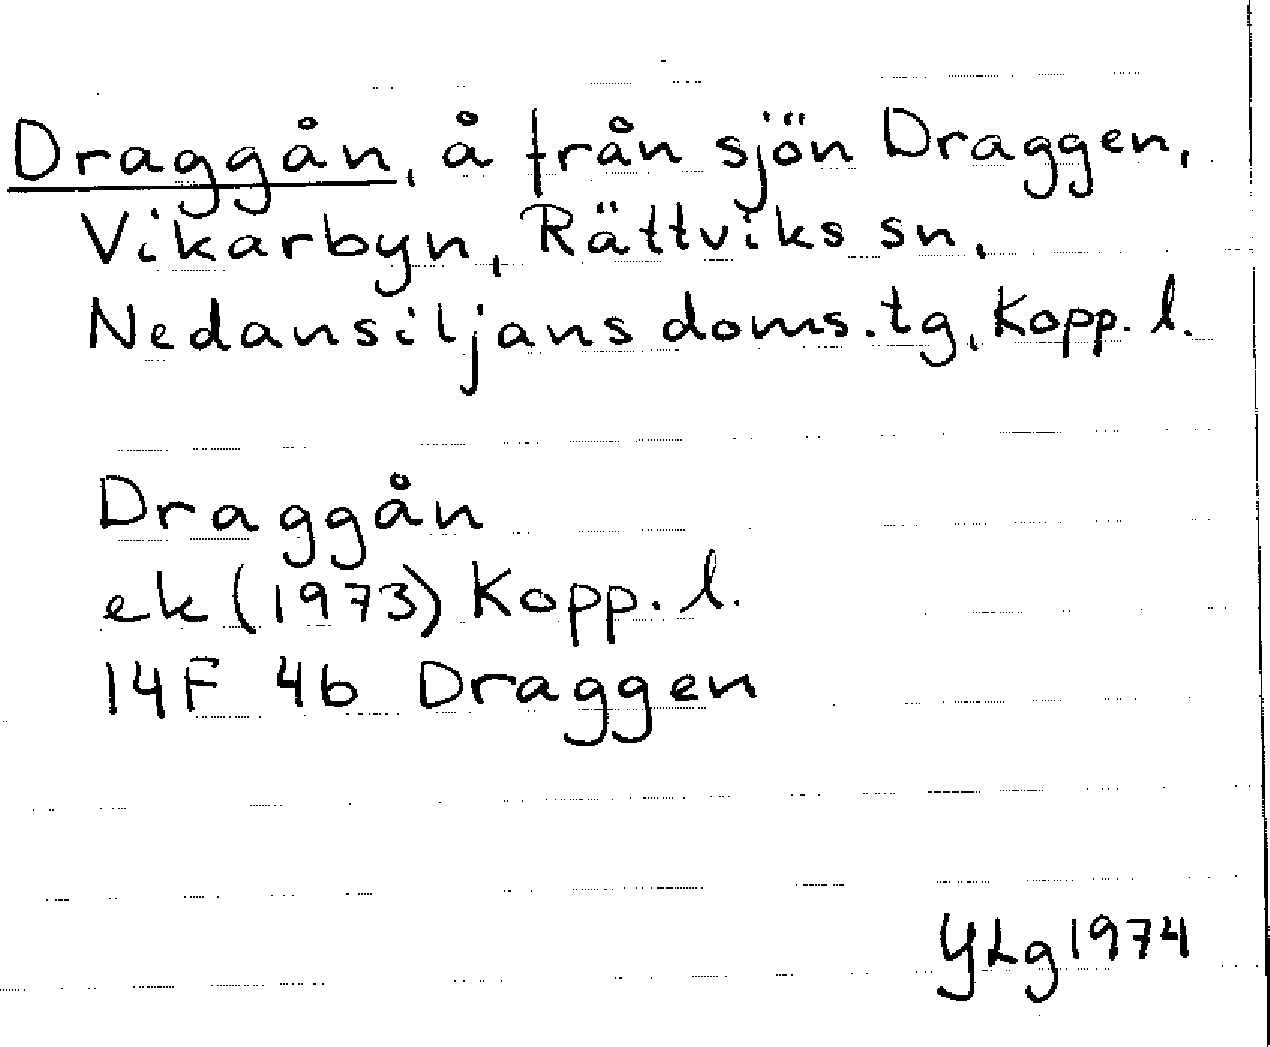 Draggån, å från sjön Draggen,
Vikarbyn, Rättviks sn,
Nedansiljans doms.tg, Kopp. l.
Draggån
ek (1973) Kopp. l.
14F 4b Draggen
YLg 1974